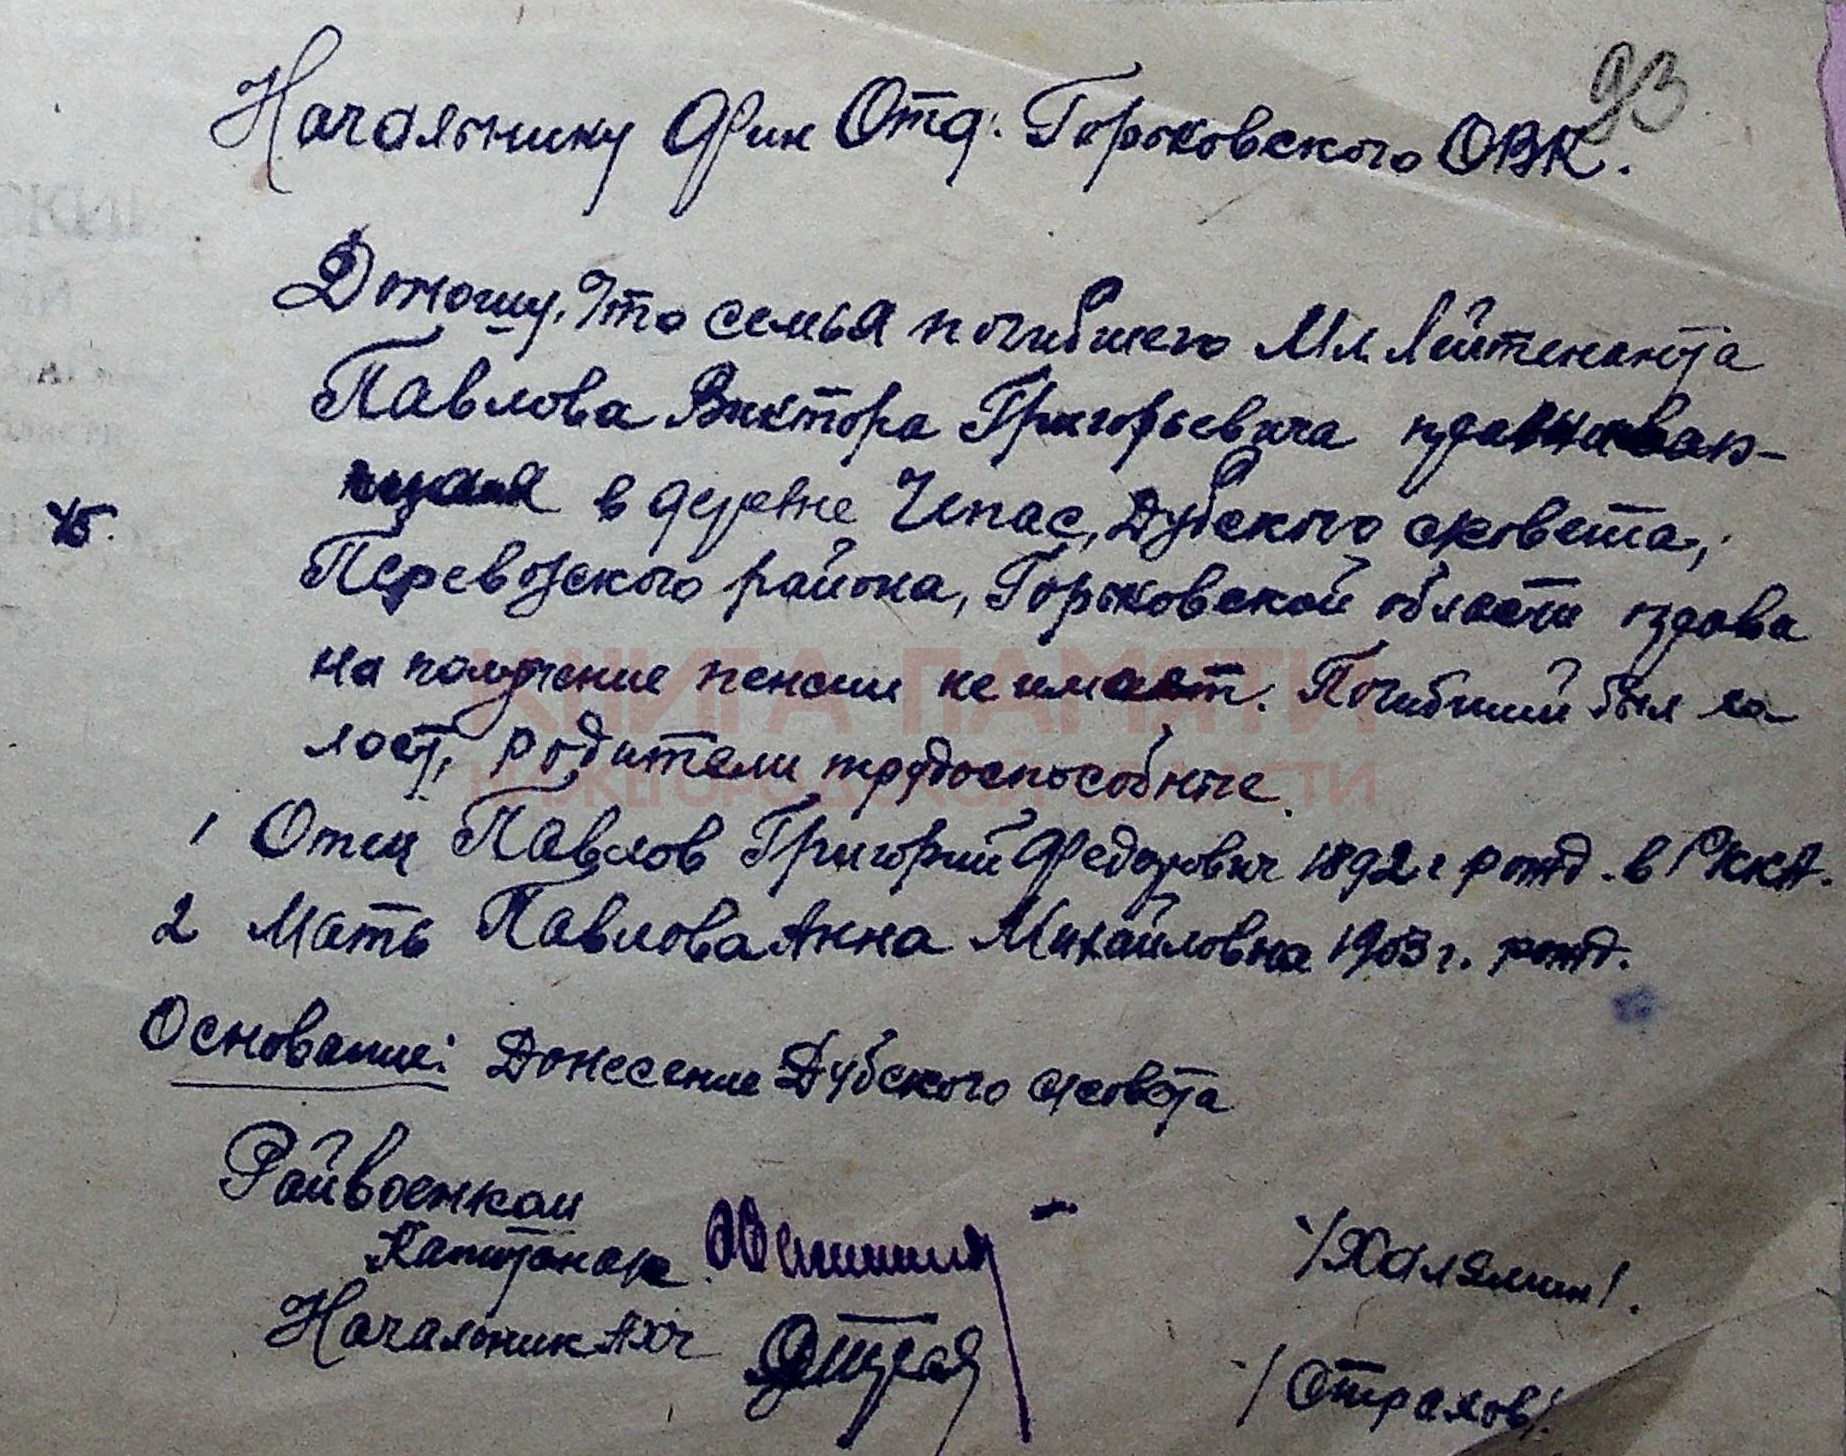 93
Начальнику Фин Отд. Горьковского ОВК.
Доношу, что семья погибшего Мл. Лейтенанта
Павлова Виктора Григорьевича
в деревне Чепас, Дубского с/совета,
45.
Перевозского района, Горьковской области права
на получение пенсии не имеет. Погибший был хо
лост, родители трудоспособные.
КНИГА ПАМЯТИ
НИЖЕГОРОДСКОЙ ОБЛАСТИ
1 Отец Павлов Григорий Федорович 1892 г рожд. в РККА.
2 Мать Павлова Анна Михайловна 1903 г. рожд.
Основание: Донесение Дубского с/совета
Райвоенком
Капитан
/Халямин/.
Начальник АХЧ
/Страхов/.